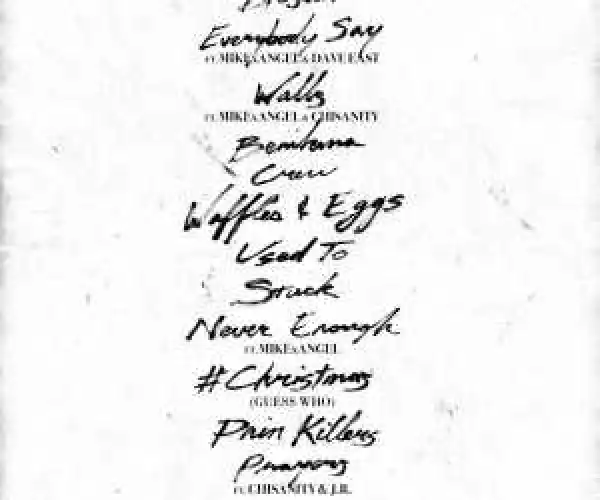 Everybody Say
FT. MIKExANGEL & DAVE EAST
Walls
FT. MIKExANGEL & CHISANITY
Crew
Waffles & Eggs
Used To
Stuck
Never Enough
FT. MIKExANGEL
#Christmas
(GUESS WHO)
Pain Killers
Prayers
FT. CHISANITY & J.R.